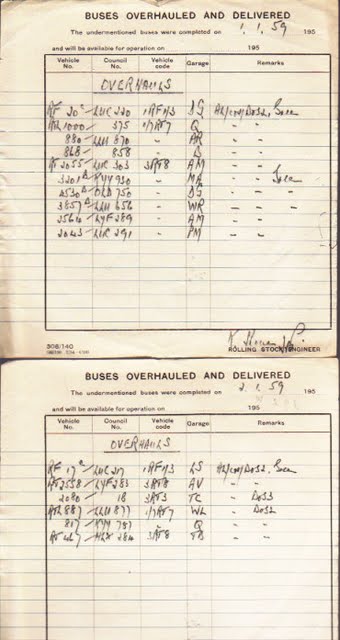 BUSES OVERHAULED AND DELIVERED
The undermentioned buses were completed on 1.1.59 195
and will be available for operation on 195
Vehicle No. Council No. Vehicle code Garage Remarks
OVERHAULS
RF 20 LUC 220 1RF1/3 DG
RTL 1000 375 1/7RT7 Q " "
880 LLU 870 " AR " "
868 858 " " "
RT 2055 LUC 303 3RT8 AM " "
3201 KYY 930 " MA " "
4530 OLD 750 " DG " "
3857 LLU 656 " WR " "
2564 LYF 289 " AM " "
2043 LUC 291 " PM " "
308/140
ROLLING STOCK ENGINEER
BUSES OVERHAULED AND DELIVERED
The undermentioned buses were completed on 2.1.59 195
and will be available for operation on 195
Vehicle No. Council No. Vehicle code Garage Remarks
OVERHAULS
RF 17 LUC 217 1RF1/3 LS
RT 2558 LYF 283 3RT8 AV " "
2080 18 3RT3 TC " DOS3
RTL 887 LLU 877 1/7RT7 WL " DOS2
817 KYY 787 " Q " "
RT 427 HLX 284 3RT8 TB " "